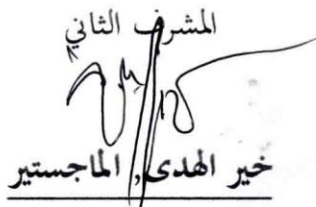 المشرف الثاني
خير الهدى, الماجستير